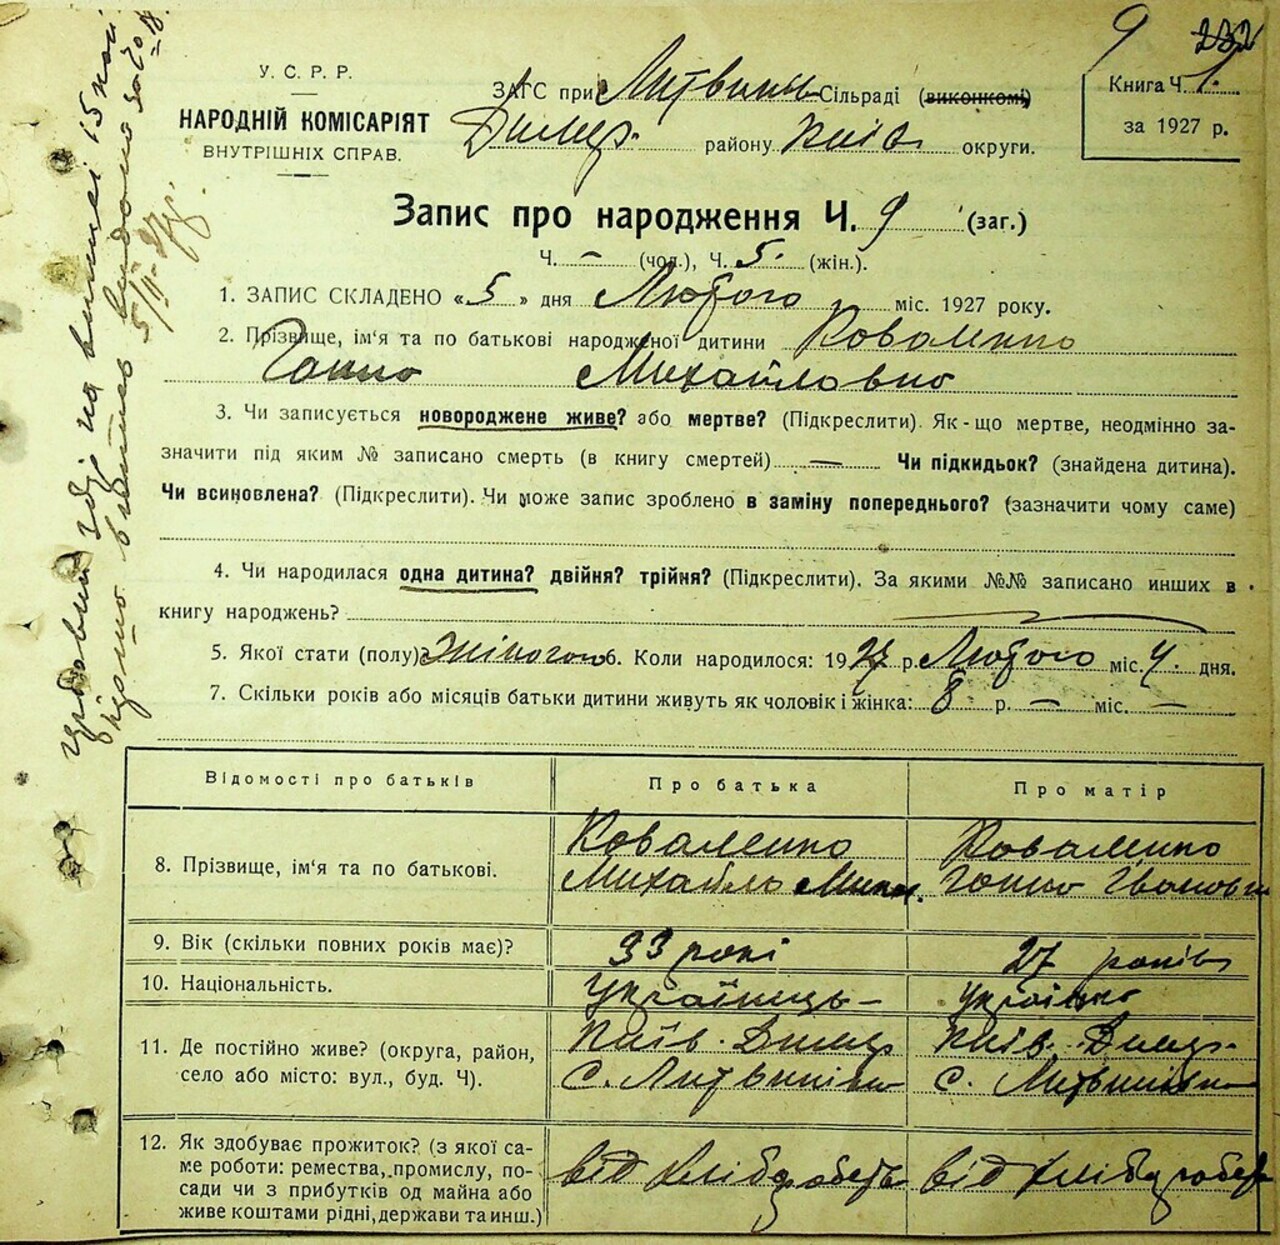 9 232
У. С. Р. Р.
НАРОДНІЙ КОМІСАРІЯТ
ВНУТРІШНІХ СПРАВ.
ЗАГС при Литвин. Сільраді (виконкомі)
Димер. району Київ округи.
Книга Ч. 1.
за 1927 р.
Запис про народження Ч. 9 (заг.)
Ч. — (чол.), Ч. 5. (жін.).
1. ЗАПИС СКЛАДЕНО «5» дня Лютого міс. 1927 року.
2. Прізвище, ім'я та по батькові народженої дитини Коваленко
Ганна Михайловна
3. Чи записується новороджене живе? або мертве? (Підкреслити). Як-що мертве, неодмінно за-
значити під яким № записано смерть (в книгу смертей) — Чи підкидьок? (знайдена дитина).
Чи всиновлена? (Підкреслити). Чи може запис зроблено в заміну попереднього? (зазначити чому саме)
4. Чи народилася одна дитина? двійня? трійня? (Підкреслити). За якими №№ записано инших в
книгу народжень?
5. Якої стати (полу)? жіночого 6. Коли народилося: 1927 р. Лютого міс. 4. дня.
7. Скільки років або місяців батьки дитини живуть як чоловік і жінка: 8 р. — міс. —
Відомості про батьків Про батька Про матір
8. Прізвище, ім'я та по батькові. Коваленко Михайло Коваленко Ганна Івановна
9. Вік (скільки повних років має)? 33 рокі 27 років
10. Національність. Українець — Українка
11. Де постійно живе? (округа, район, Київ. Димер Київ. Димер.
село або місто: вул., буд. Ч). с. Литвинівка с. Литвинівка
12. Як здобуває прожиток? (з якої са-
ме роботи: ремества, промислу, по- від хліборобств від хлібороб
сади чи з прибутків од майна або
живе коштами рідні, держави та инш.)